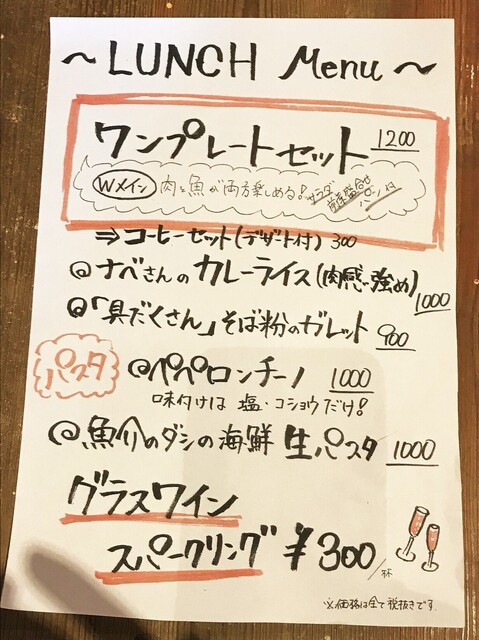 ～LUNCH Menu～
ワンプレートセット 1200
Wメイン 肉と魚が両方楽しめる! サラダ 前菜盛合せ パン付
⇒コーヒーセット(デザート付) 300
@ナベさんのカレーライス(肉感強め) 1000
@「具だくさん」そば粉のガレット 900
パスタ @ペペロンチーノ 1000
味付けは塩・コショウだけ!
@魚介のダシの海鮮生パスタ 1000
グラスワイン
スパークリング ¥300/杯
※価格は全て税抜きです。